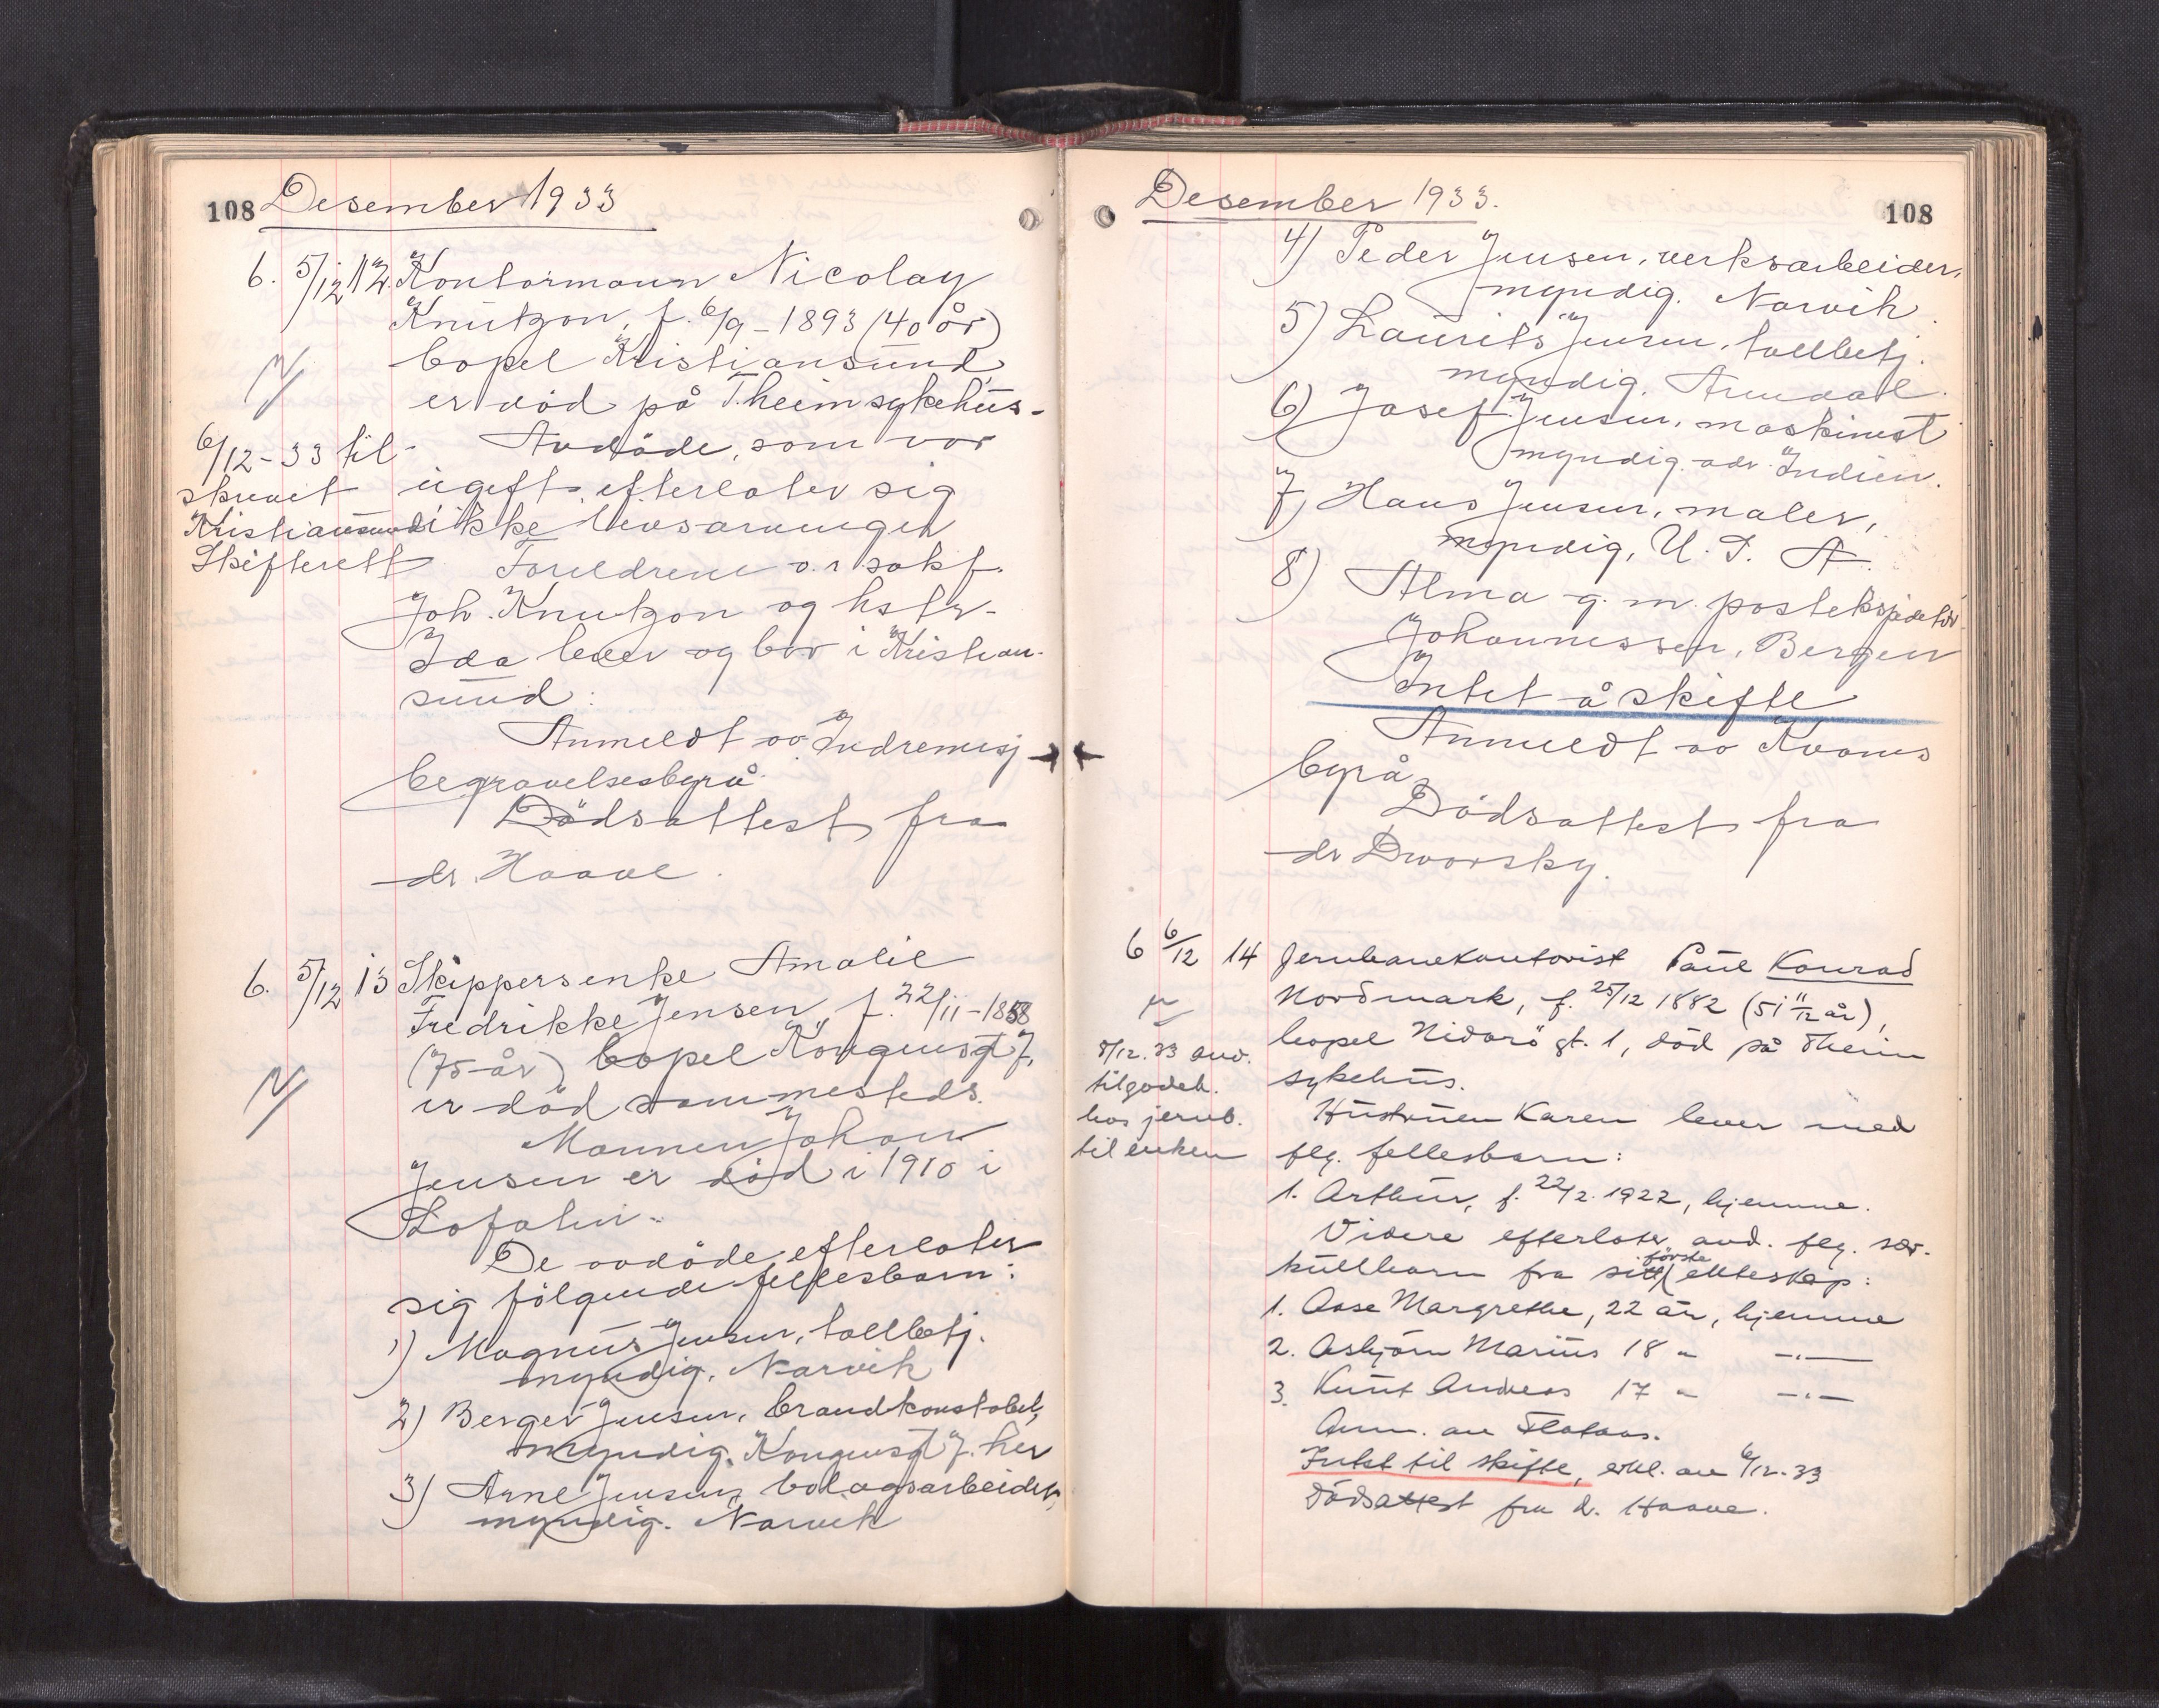 108 Desember 1933
6. 5/12 12. Kontormann Nicolay
Knutzon, f. 6/9-1893 (40 år)
bopel Kristiansund,
er död på T.heim sykehus.
Avdöde, som var
ugift, efterlater sig
ikke livsarvinger
Foreldrene o.r.sakf.
Joh. Knutzon og hstr.
Ida lever og bor i Kristian-
sund.
Anmeldt av Indremisj
begravelsesbyrå.
Dödsattest fra
dr. Haave.
6/12-33 til-
skrevet
Kristiansund
Skifterett
6. 5/12 13 Skippersenke Amalie
Fredrikke Jensen f. 22/11-1858
(75 år) bopel Kongensgt 7,
er död sammesteds.
Mannen Johan
Jensen er död i 1910 i
Lofoten.
De avdöde efterlater
sig fölgende fellesbarn:
1) Magnus Jensen, tollbetj.
myndig, Narvik
2) Berger Jensen, brandkonstabel,
myndig, Kongensgt 7. her
3) Arne Jensen, bolagsarbeider,
myndig. Narvik
Desember 1933. 108
4) Peder Jensen, verksarbeider,
myndig. Narvik.
5) Laurits Jensen, tollbetj.
myndig. Arendal.
6) Josef Jensen, maskinist
myndig. adr. Indien.
7) Hans Jensen, maler,
myndig, U. S. A.
8) Alma g. m. postekspeditör
Johannessen, Bergen
Intet å skifte
Anmeldt av Kvams
byrå
Dödsattest fra
dr Dworsky.
6 6/12 14 Jernbanekontorist Paul Konrad
Nordmark, f. 25/12 1882 (51 11/12 år),
bopel Nidarö gt. 1, död på Theim
sykehus.
Hustruen Karen lever med
flg. fellesbarn:
1. Arthur, f. 22/2. 1922, hjemme.
Videre efterlater avd. flg. sær-
kullbarn fra sitt första ekteskap:
1. Aase Margrethe, 22 år, hjemme
2. Asbjørn Marius 18 " -"-
3. Knut Andreas 17 " -"-
Anm. av Flataas.
Intet til skifte, erkl. av 6/12-33
Dödsattest fra d. Haave.
8/12.33 avd.
tilgodeh.
hos jernb.
til enken